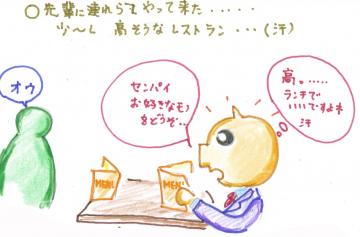 ○先輩に連れらてやって来た・・・・・
少〜し 高そうなレストラン・・・(汗)
オウ
センパイ
お好きなモノ
をどうぞ…
高。……
ランチで
いいですよネ
汗
MENU
MENU